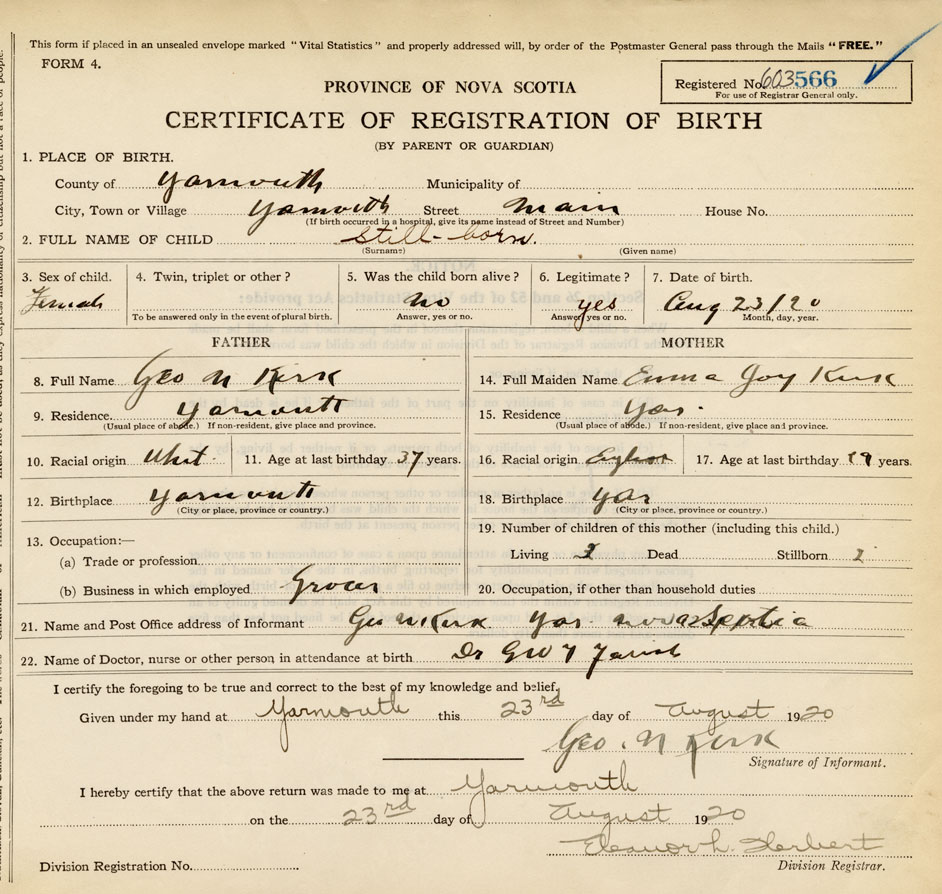 This form if placed in an unsealed envelope marked "Vital Statistics" and properly addressed will, by order of the Postmaster General pass through the Mails "FREE."
FORM 4.
Registered No. 603566
For use of Registrar General only.
PROVINCE OF NOVA SCOTIA
CERTIFICATE OF REGISTRATION OF BIRTH
(BY PARENT OR GUARDIAN)
1. PLACE OF BIRTH.
County of Yarmouth Municipality of
City, Town or Village Yarmouth Street Main House No.
(If birth occurred in a hospital, give its name instead of Street and Number)
2. FULL NAME OF CHILD Still-born.
(Surname) (Given name)
3. Sex of child. 4. Twin, triplet or other? 5. Was the child born alive? 6. Legitimate? 7. Date of birth.
Female no yes Aug 23/20
To be answered only in the event of plural birth. Answer, yes or no. Answer, yes or no. Month, day, year.
FATHER MOTHER
8. Full Name Geo N Kirk 14. Full Maiden Name Emma Joy Kirk
9. Residence. Yarmouth 15. Residence Yar.
(Usual place of abode.) If non-resident, give place and province. (Usual place of abode.) If non-resident, give place and province.
10. Racial origin 11. Age at last birthday 37 years. 16. Racial origin 17. Age at last birthday years.
12. Birthplace Yarmouth 18. Birthplace Yar
(City or place, province or country.) (City or place, province or country.)
19. Number of children of this mother (including this child.)
13. Occupation:—
(a) Trade or profession Living Dead Stillborn
(b) Business in which employed Grocer 20. Occupation, if other than household duties
21. Name and Post Office address of Informant Geo N Kirk Yar. Nova Scotia
22. Name of Doctor, nurse or other person in attendance at birth Dr
I certify the foregoing to be true and correct to the best of my knowledge and belief.
Given under my hand at Yarmouth this 23rd day of August 1920
Geo. N Kirk
Signature of Informant.
I hereby certify that the above return was made to me at Yarmouth
on the 23rd day of August 1920
Eleanor L. Herbert
Division Registration No. Division Registrar.